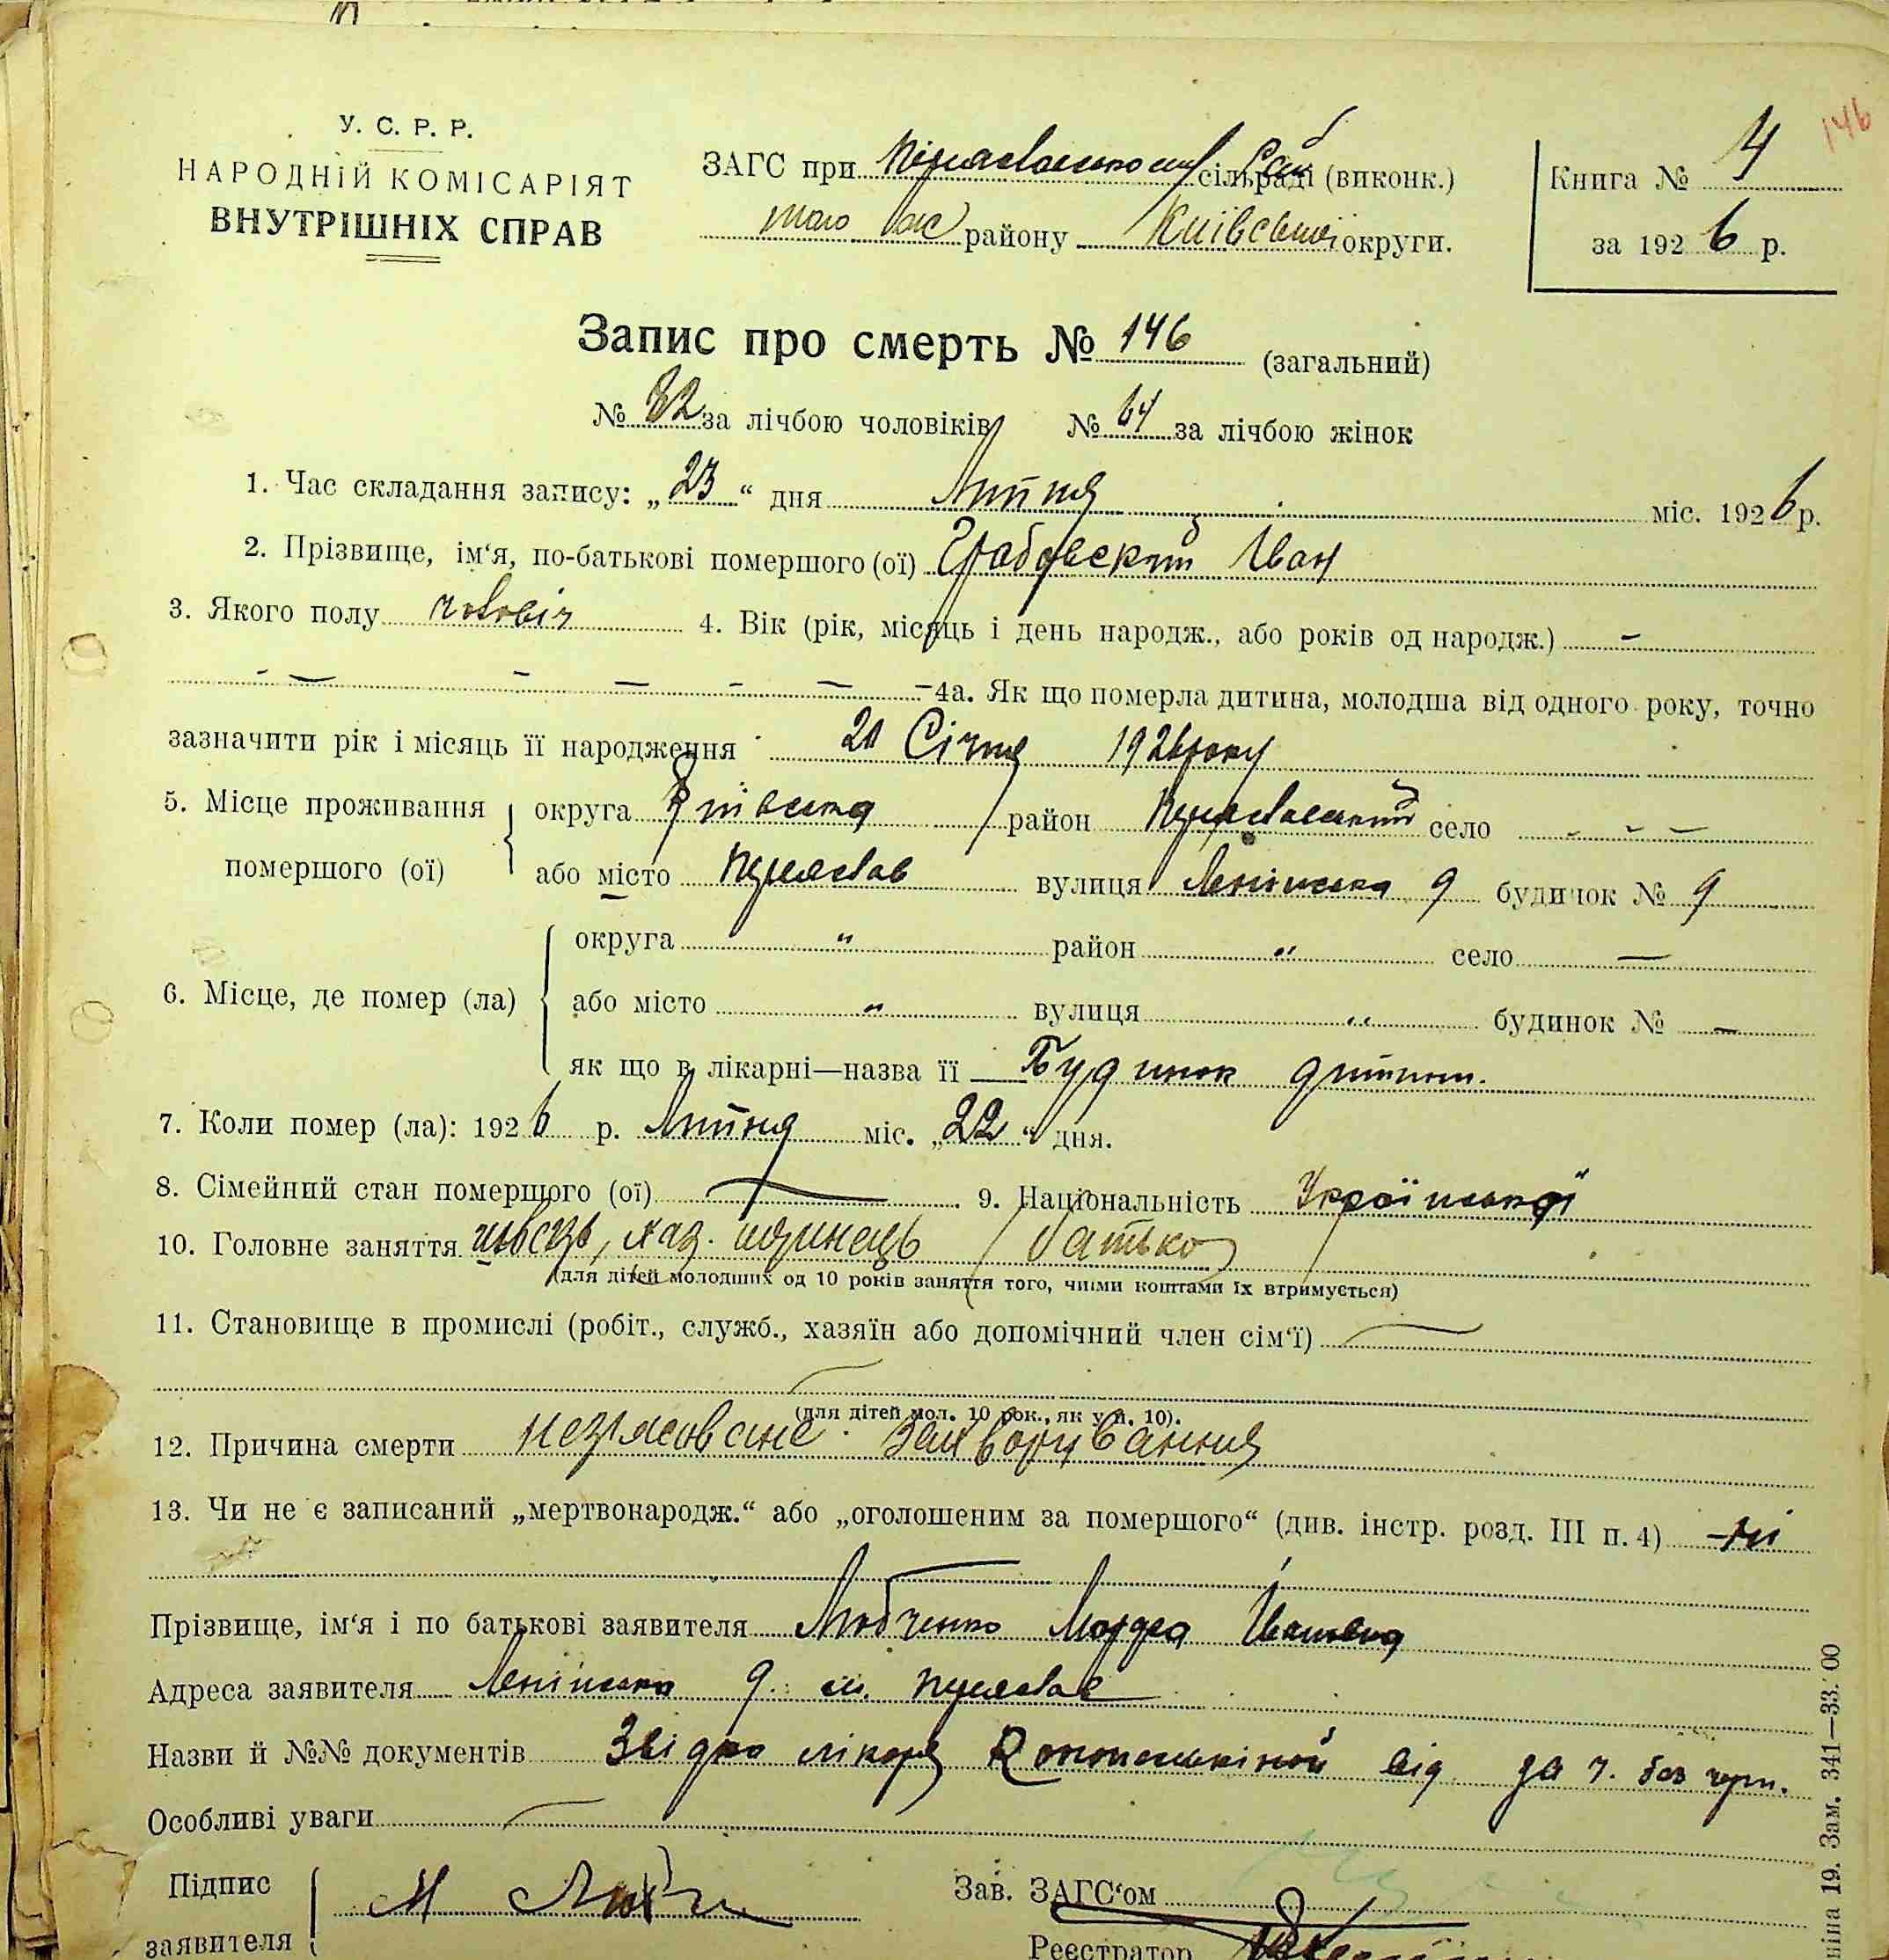 146
У. С. Р. Р.
НАРОДНІЙ КОМІСАРІЯТ
ВНУТРІШНІХ СПРАВ
ЗАГС при Переяславському сільраді (виконк.)
того ж району Київської округи.
Книга № 4
за 1926 р.
Запис про смерть № 146 (загальний)
№ 82 за лічбою чоловіків № 64 за лічбою жінок
1. Час складання запису: „23“ дня Липня міс. 1926 р.
2. Прізвище, ім‘я, по-батькові помершого (ої) Грабовский Іван
3. Якого полу чоловіч 4. Вік (рік, місяць і день народж., або років од народж.) -
- — - — - — - 4а. Як що померла дитина, молодша від одного року, точно
зазначити рік і місяць її народження 20 Січня 1926 року
5. Місце проживання помершого (ої)
округа Київська район Переяславський село - - -
або місто Переяслав вулиця Ленінська 9 будинок № 9
6. Місце, де помер (ла)
округа " район " село —
або місто " вулиця " будинок № —
як що в лікарні—назва її Будинок дитини.
7. Коли помер (ла): 1926 р. Липня міс. „22“ дня.
8. Сімейний стан померщого (ої) — 9. Національність Української
10. Головне заняття швець, одинець батько
(для дітей молодших од 10 років заняття того, чиїми коштами їх втримується)
11. Становище в промислі (робіт., служб., хазяїн або допомічний член сім‘ї) —
(для дітей мол. 10 рок., як у п. 10).
12. Причина смерти незясоване захворування
13. Чи не є записаний „мертвонародж.“ або „оголошеним за помершого“ (див. інстр. розд. III п. 4) — ні
Прізвище, ім‘я і по батькові заявителя Любченко Івановна
Адреса заявителя Ленінська 9. м. Переяслав
Назви й №№ документів Звідка лікаря від за ч. без черн.
Особливі уваги —
Підпис заявителя М Любч
Зав. ЗАГС‘ом
Реєстратор
19. Зам. 341—33.000